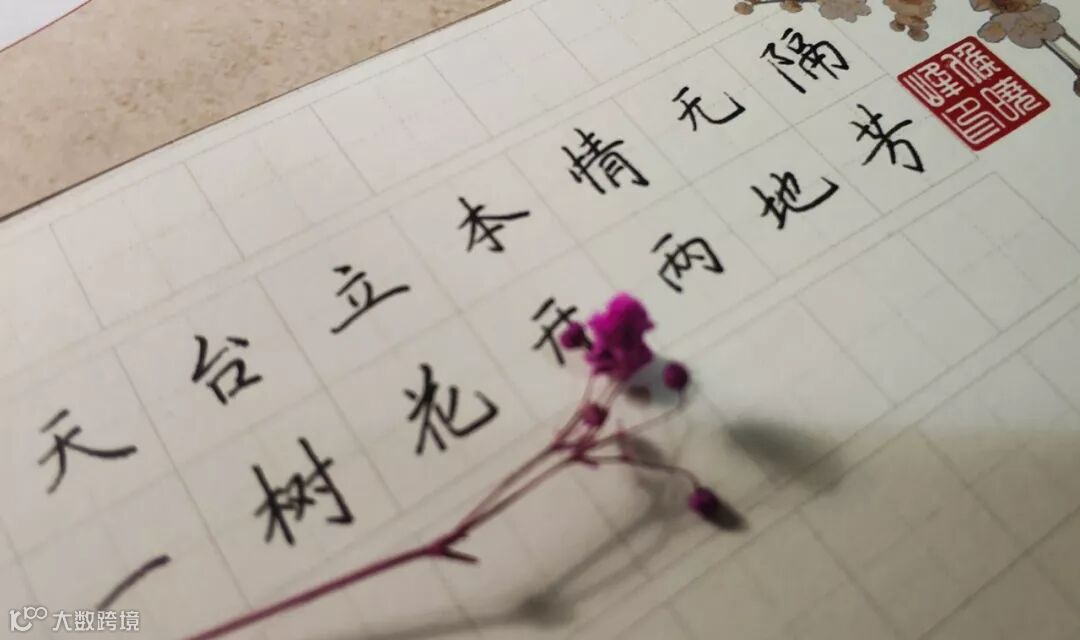 天台立本情无隔
一树花开两地芳
大数跨境